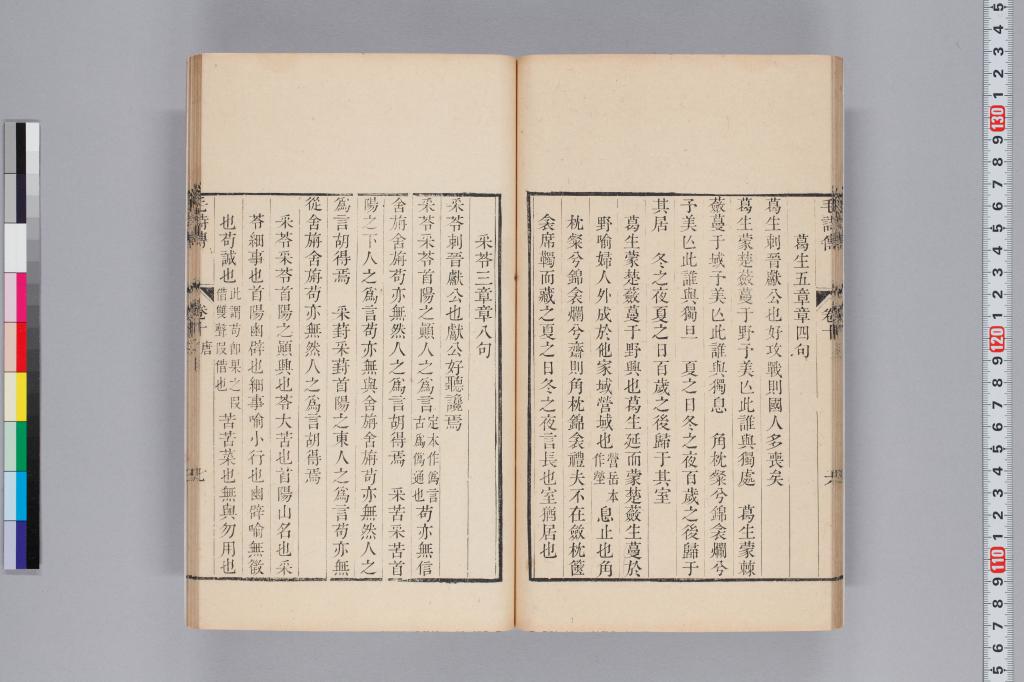 葛生五章章四句
葛生刺晉獻公也好攻戰則國人多喪矣
葛生蒙楚蘞蔓于野予美亾此誰與獨處　葛生蒙棘
蘞蔓于域予美亾此誰與獨息　角枕粲兮錦衾爛兮
予美亾此誰與獨旦　夏之日冬之夜百歲之後歸于
其居　冬之夜夏之日百歲之後歸于其室
葛生蒙楚蘞蔓于野興也葛生延而蒙楚蘞生蔓於
野喻婦人外成於他家域營域也營岳本作塋息止也角
枕粲兮錦衾爛兮齊則角枕錦衾禮夫不在斂枕篋
衾席韣而藏之夏之日冬之夜言長也室猶居也
毛詩傳
卷十
采苓三章章八句
采苓刺晉獻公也獻公好聽讒焉
采苓采苓首陽之顚人之爲言定本作僞言古爲僞通也苟亦無信
舍旃舍旃苟亦無然人之爲言胡得焉　采苦采苦首
陽之下人之爲言苟亦無與舍旃舍旃苟亦無然人之
爲言胡得焉　采葑采葑首陽之東人之爲言苟亦無
從舍旃舍旃苟亦無然人之爲言胡得焉
采苓采苓首陽之顚興也苓大苦也首陽山名也采
苓細事也首陽幽辟也細事喻小行也幽辟喻無徵
也苟誠也此謂苟卽果之叚借雙聲叚借也苦苦菜也無與勿用也
毛詩傳
卷十　唐